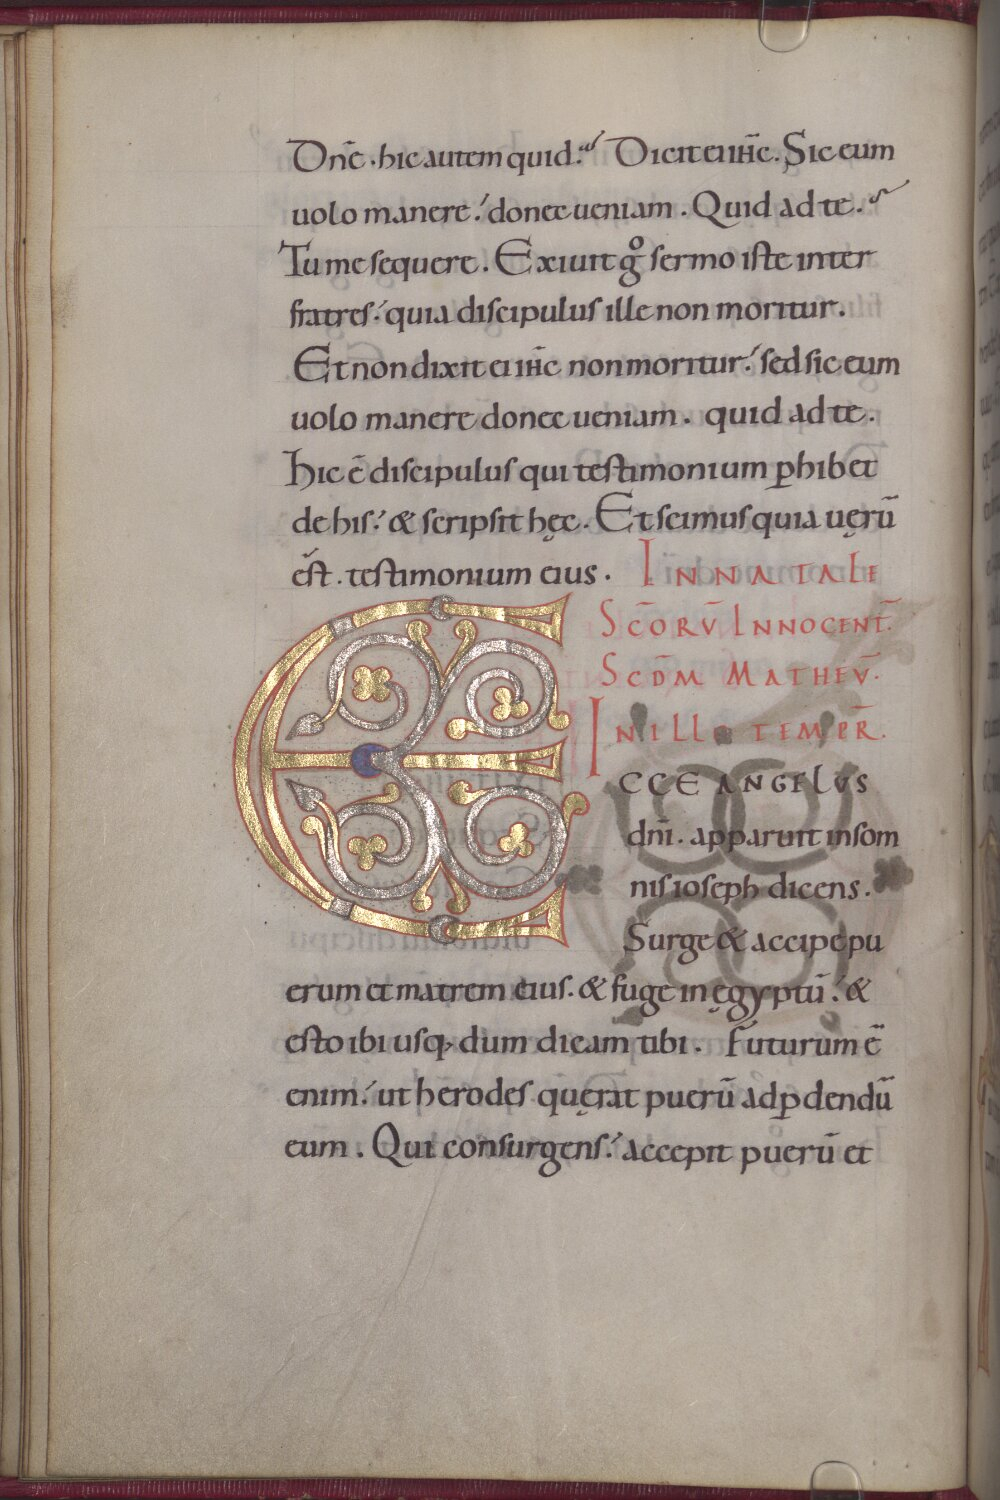 Dn̄e · hic autem quid · Dicit ei ih̄c . Sic eum
uolo manere · donec ueniam . Quid ad te .
Tu me sequere . Exiuit gͦ sermo iste inter
fratres · quia discipulus ille non moritur .
Et non dixit ei ih̄c non moritur · sed sic eum
uolo manere donec ueniam . quid ad te .
Hic ē discipulus qui testimonium ꝑhibet
de his · & scripsit hęc . Et scimus quia uęrū
est . testimonium eius . IN NATALE
SC̄ORV̄ INNOCENT̄.
SCD̄M MATHEV̄.
IN ILLO TEMPR̄.
ECCE ANGELUS
dn̄i . apparuit in som
nis ioseph dicens .
Surge & accipe pu
erum et matrem eius . & fuge in ęgyptū · &
esto ibi usq; dum dicam tibi . Futurum ē
enim · ut herodes quęrat puerū ad ꝑdendū
eum . Qui consurgens · accepit puerū et